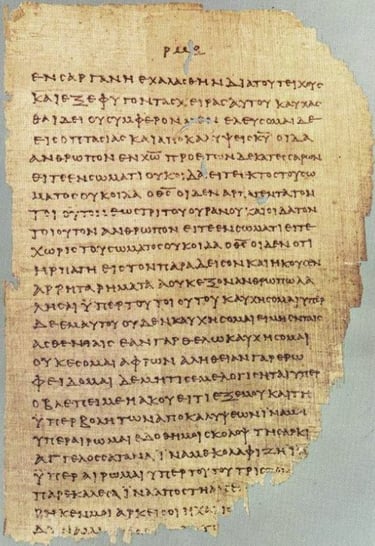 ΕΝϹΑΡΓΑΝΗΕΧΑΛΑϹΘΗΝΔΙΑΤΟΥΤΕΙΧΟΥϹ
ΚΑΙΕΞΕΦΥΓΟΝΤΑϹΧΕΙΡΑϹΑΥΤΟΥΚΑΥΧΑϹ
ΘΑΙΔΕΙΟΥϹΥΜΦΕΡΟΝΜΕΝΕΛΕΥϹΟΜΑΙΔΕ
ΕΙϹΟΠΤΑϹΙΑϹΚΑΙΑΠΟΚΑΛΥΨΕΙϹΚ̅Υ̅ΟΙΔΑ
ΑΝΘΡΩΠΟΝΕΝΧ̅Ω̅ΠΡΟΕΤΩΝΔΕΚΑΤΕϹϹΑΡΩΝ
ΕΙΤΕΕΝϹΩΜΑΤΙΟΥΚΟΙΔΑΕΙΤΕΕΚΤΟϹΤΟΥϹΩ
ΜΑΤΟϹΟΥΚΟΙΔΑΟΘ̅Ϲ̅ΟΙΔΕΝΑΡΠΑΓΕΝΤΑΤΟΝ
ΤΟΙΟΥΤΟΝΕΩϹΤΡΙΤΟΥΟΥΡΑΝΟΥΚΑΙΟΙΔΑΤΟΝ
ΤΟΙΟΥΤΟΝΑΝΘΡΩΠΟΝΕΙΤΕΕΝϹΩΜΑΤΙΕΙΤΕ
ΧΩΡΙϹΤΟΥϹΩΜΑΤΟϹΟΥΚΟΙΔΑΟΘ̅Ϲ̅ΟΙΔΕΝΟΤΙ
ΗΡΠΑΓΗΕΙϹΤΟΝΠΑΡΑΔΕΙϹΟΝΚΑΙΗΚΟΥϹΕΝ
ΑΡΡΗΤΑΡΗΜΑΤΑΑΟΥΚΕΞΟΝΑΝΘΡΩΠΩΛΑ
ΛΗϹΑΙΫΠΕΡΤΟΥΤΟΙΟΥΤΟΥΚΑΥΧΗϹΟΜΑΙΫΠΕΡ
ΔΕΕΜΑΥΤΟΥΟΥΔΕΝΚΑΥΧΗϹΟΜΑΙΕΙΜΗΕΝΤΑΙϹ
ΑϹΘΕΝΕΙΑΙϹΕΑΝΓΑΡΘΕΛΩΚΑΥΧΗϹΟΜΑΙ
ΟΥΚΕϹΟΜΑΙΑΦΡΩΝΑΛΗΘΕΙΑΝΓΑΡΕΡΩ
ΦΕΙΔΟΜΑΙΔΕΜΗΤΙϹΕΜΕΛΟΓΙϹΗΤΑΙΫΠΕΡ
ΟΒΛΕΠΕΙΜΕΗΑΚΟΥΕΙΤΙΕΞΕΜΟΥΚΑΙΤΗ
ΫΠΕΡΒΟΛΗΤΩΝΑΠΟΚΑΛΥΨΕΩΝΪΝΑΜΗ
ΫΠΕΡΑΙΡΩΜΑΙΕΔΟΘΗΜΟΙϹΚΟΛΟΨΤΗϹΑΡΚΙ
ΑΓΓΕΛΟϹϹΑΤΑΝΑΪΝΑΜΕΚΟΛΑΦΙΖΗΪ
ΫΠΕΡΑΙΡΩΜΑΙΫΠΕΡΤΟΥΤΟΥΤΡΙϹ
ΠΑΡΕΚΑΛΕϹΑΪΝΑΑΠΟϹΤΗ
ΡΗΚΕΝΜΟΙΑΡΚΕΙϹΟΙΗΧΑΡΙϹ